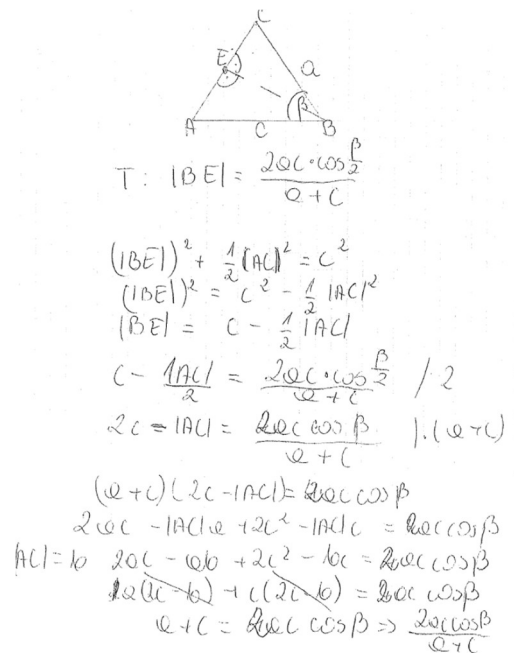 C
E
a
β
A C B
T: |BE| = 2ac·cos β/2 / a+c
(|BE|)² + 1/2 |AC|² = c²
(|BE|)² = c² - 1/2 |AC|²
|BE| = c - 1/2 |AC|
c - |AC|/2 = 2ac·cos β/2 / a+c /·2
2c - |AC| = 2ac cos β / a+c |·(a+c)
(a+c)(2c-|AC|) = 2ac cos β
2ac - |AC|a + 2c² - |AC|c = 2ac cos β
|AC|=b 2ac - ab + 2c² - bc = 2ac cos β
a(2c-b) + c(2c-b) = 2ac cos β
a+c = 2ac cos β => 2ac cos β / a+c